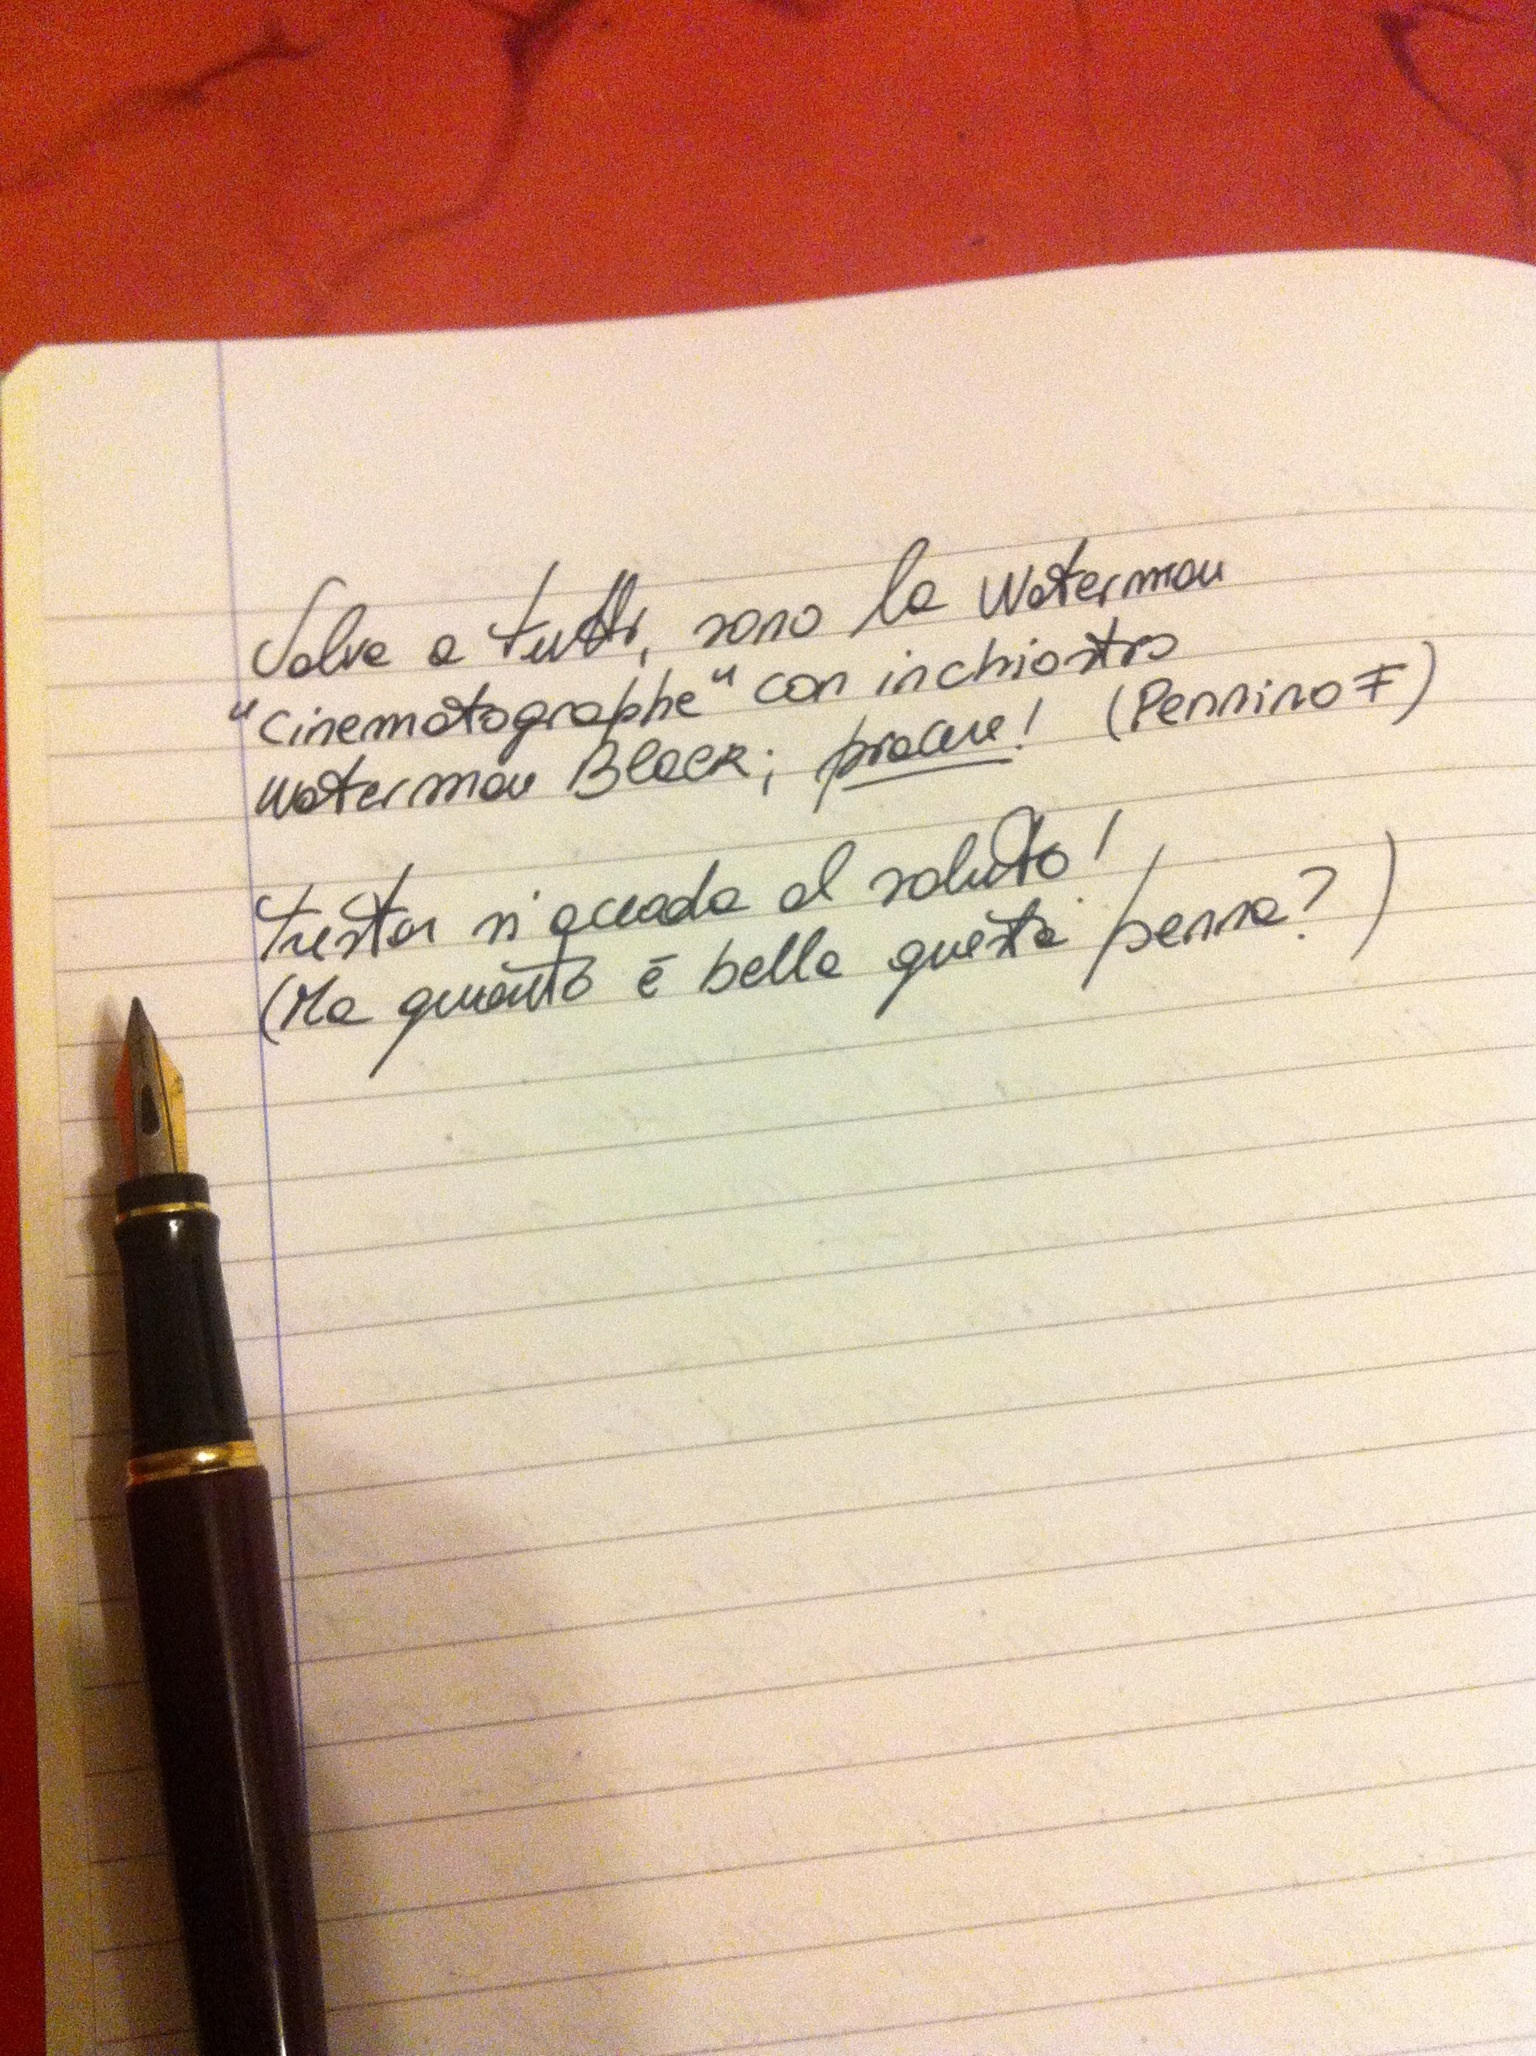 Salve a tutti, sono la Waterman
"Cinematographe" con inchiostro
Waterman Black; piacere! (Pennino F)
si accoda al saluto!
(Ma quanto è bella questa penna?)